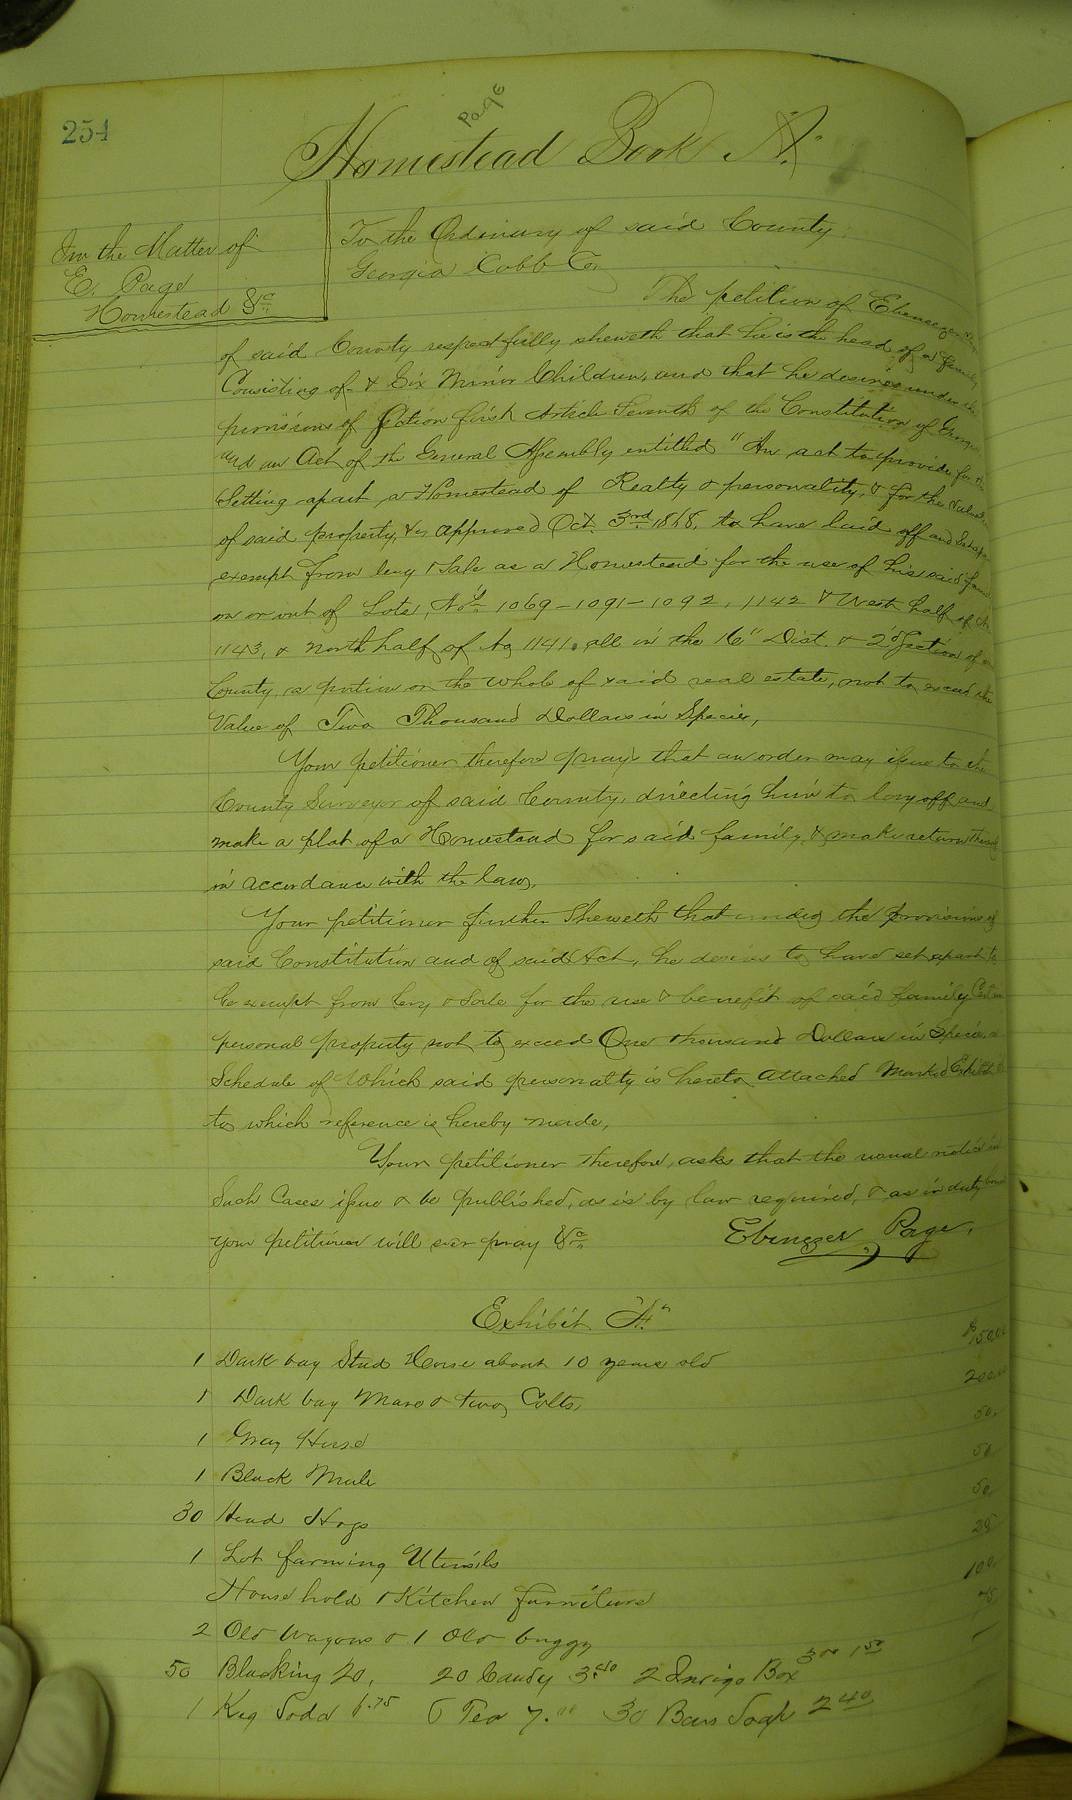 254
Page
Homestead Book A.
In the Matter of
E. Page
Homestead &c
To the Ordinary of said County
Georgia Cobb Co.
The petition of Ebenezer
of said County respectfully sheweth that he is the head of a family
Consisting of & Six Minor Children, and that he desires under the
provisions of Section first Article Seventh of the Constitution of Georgia
and an Act of the General Assembly entitled "An act to provide for the
Setting apart a Homestead of Realty & personality, & for the valuation
of said property, &c approved Oct. 3rd 1868, to have laid off and
exempt from levy & Sale as a Homestead for the use of his said family
on or out of Lots, Nos 1069-1091-1092, 1142 & West half of
1143, & north half of No 1141, all in the 16" Dist. & 2d Section of
County, a portion or the whole of said real estate, not to exceed the
Value of Two Thousand Dollars in Specie,
Your petitioner therefore prays that an order may issue to the
County Surveyor of said County, directing him to lay off and
make a plat of a Homestead for said family & make return thereof
in accordance with the law,
Your petitioner further Sheweth that under the provisions of
said Constitution and of said Act, he desires to have set apart to
be exempt from levy & Sale for the use & benefit of said family Certain
personal property not to exceed One thousand Dollars in Specie, a
Schedule of Which said personalty is hereto attached Marked Exhibit
to which reference is hereby made,
Your petitioner therefore, asks that the usual notice in
Such Cases issue & be published, as is by law required, & as in duty bound
your petitioner will ever pray &c
Ebenezer Page,
Exhibit "A"
1 Dark bay Stud Horse about 10 years old $150.00
1 Dark bay Mare & two Colts, 200.00
1 Gray Horse 50.
1 Black Mule 50
30 Head Hogs 50.
1 Lot farming Utensils 25
House hold & Kitchen furniture 100.
2 Old Wagons & 1 Old buggy 75
50 Blacking 20, 20 Candy 3.40 2 Indigo Box 3.00 1.50
1 Keg Soda 6.75 6 Tea 7.00 30 Bars Soap 2.40